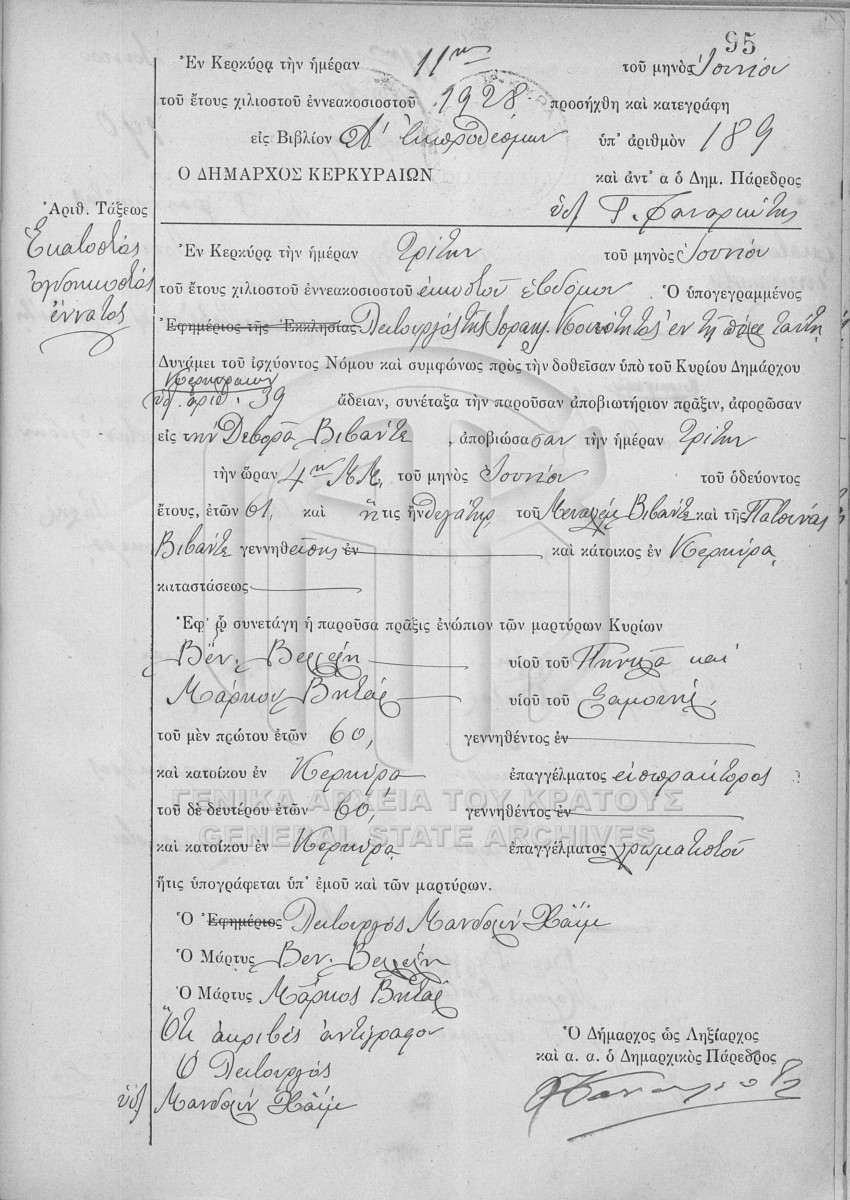 95
Ἐν Κερκύρᾳ τὴν ἡμέραν 11ην τοῦ μηνὸς Ἰουνίου
τοῦ ἔτους χιλιοστοῦ ἐννεακοσιοστοῦ 1928 προσήχθη καὶ κατεγράφη
εἰς Βιβλίον Α' ἐκπροθέσμων ὑπ' ἀριθμὸν 189
Ο ΔΗΜΑΡΧΟΣ ΚΕΡΚΥΡΑΙΩΝ καὶ ἀντ' α ὁ Δημ. Πάρεδρος
Ἀριθ. Τάξεως
Ἑκατοστὸς
ὀγδοηκοστὸς
ἔννατος
Ἐν Κερκύρᾳ τὴν ἡμέραν Τρίτην τοῦ μηνὸς Ἰουνίου
τοῦ ἔτους χιλιοστοῦ ἐννεακοσιοστοῦ εἰκοστοῦ ἑβδόμου Ὁ ὑπογεγραμμένος
Ἐφημέριος τῆς Ἐκκλησίας Λειτουργὸς τῆς Ἰσραηλ. Κοινότητος ἐν τῇ πόλει ταύτῃ
Δυνάμει τοῦ ἰσχύοντος Νόμου καὶ συμφώνως πρὸς τὴν δοθεῖσαν ὑπὸ τοῦ Κυρίου Δημάρχου
Κερκυραίων
ὑπ. ἀριθ. 39 ἄδειαν, συνέταξα τὴν παροῦσαν ἀποβιωτήριον πρᾶξιν, ἀφορῶσαν
εἰς τὴν Δεβορᾶ Βιβάντε, ἀποβιώσασαν τὴν ἡμέραν Τρίτην
τὴν ὥραν 4ην Μ.Μ. τοῦ μηνὸς Ἰουνίου τοῦ ὁδεύοντος
ἔτους, ἐτῶν 61, καὶ ἥτις ἦν θυγάτηρ τοῦ Μεναχὲμ Βιβάντε καὶ τῆς
Βιβάντε γεννηθείσης ἐν καὶ κάτοικος ἐν Κερκύρᾳ,
καταστάσεως
Ἐφ' ᾧ συνετάγη ἡ παροῦσα πρᾶξις ἐνώπιον τῶν μαρτύρων Κυρίων
Βὲν. Βελλέλη υἱοῦ τοῦ καὶ
Μάρκου Βιτὰλ υἱοῦ τοῦ Σαμουὴλ,
τοῦ μὲν πρώτου ἐτῶν 60, γεννηθέντος ἐν
καὶ κατοίκου ἐν Κερκύρᾳ ἐπαγγέλματος εἰσπράκτορος
τοῦ δὲ δευτέρου ἐτῶν 60, γεννηθέντος ἐν
καὶ κατοίκου ἐν Κερκύρᾳ ἐπαγγέλματος χρωματιστοῦ
ἥτις ὑπογράφεται ὑπ' ἐμοῦ καὶ τῶν μαρτύρων.
ΓΕΝΙΚΑ ΑΡΧΕΙΑ ΤΟΥ ΚΡΑΤΟΥΣ
GENERAL STATE ARCHIVES
Ὁ Ἐφημέριος Λειτουργὸς Χαῒμ
Ὁ Μάρτυς Βεν. Βελλέλη
Ὁ Μάρτυς Μάρκος Βιτὰλ
Ὅτι ἀκριβὲς ἀντίγραφον
Ὁ Λειτουργὸς
Χαῒμ
Ὁ Δήμαρχος ὡς Ληξίαρχος
καὶ α. α. ὁ Δημαρχικὸς Πάρεδρος